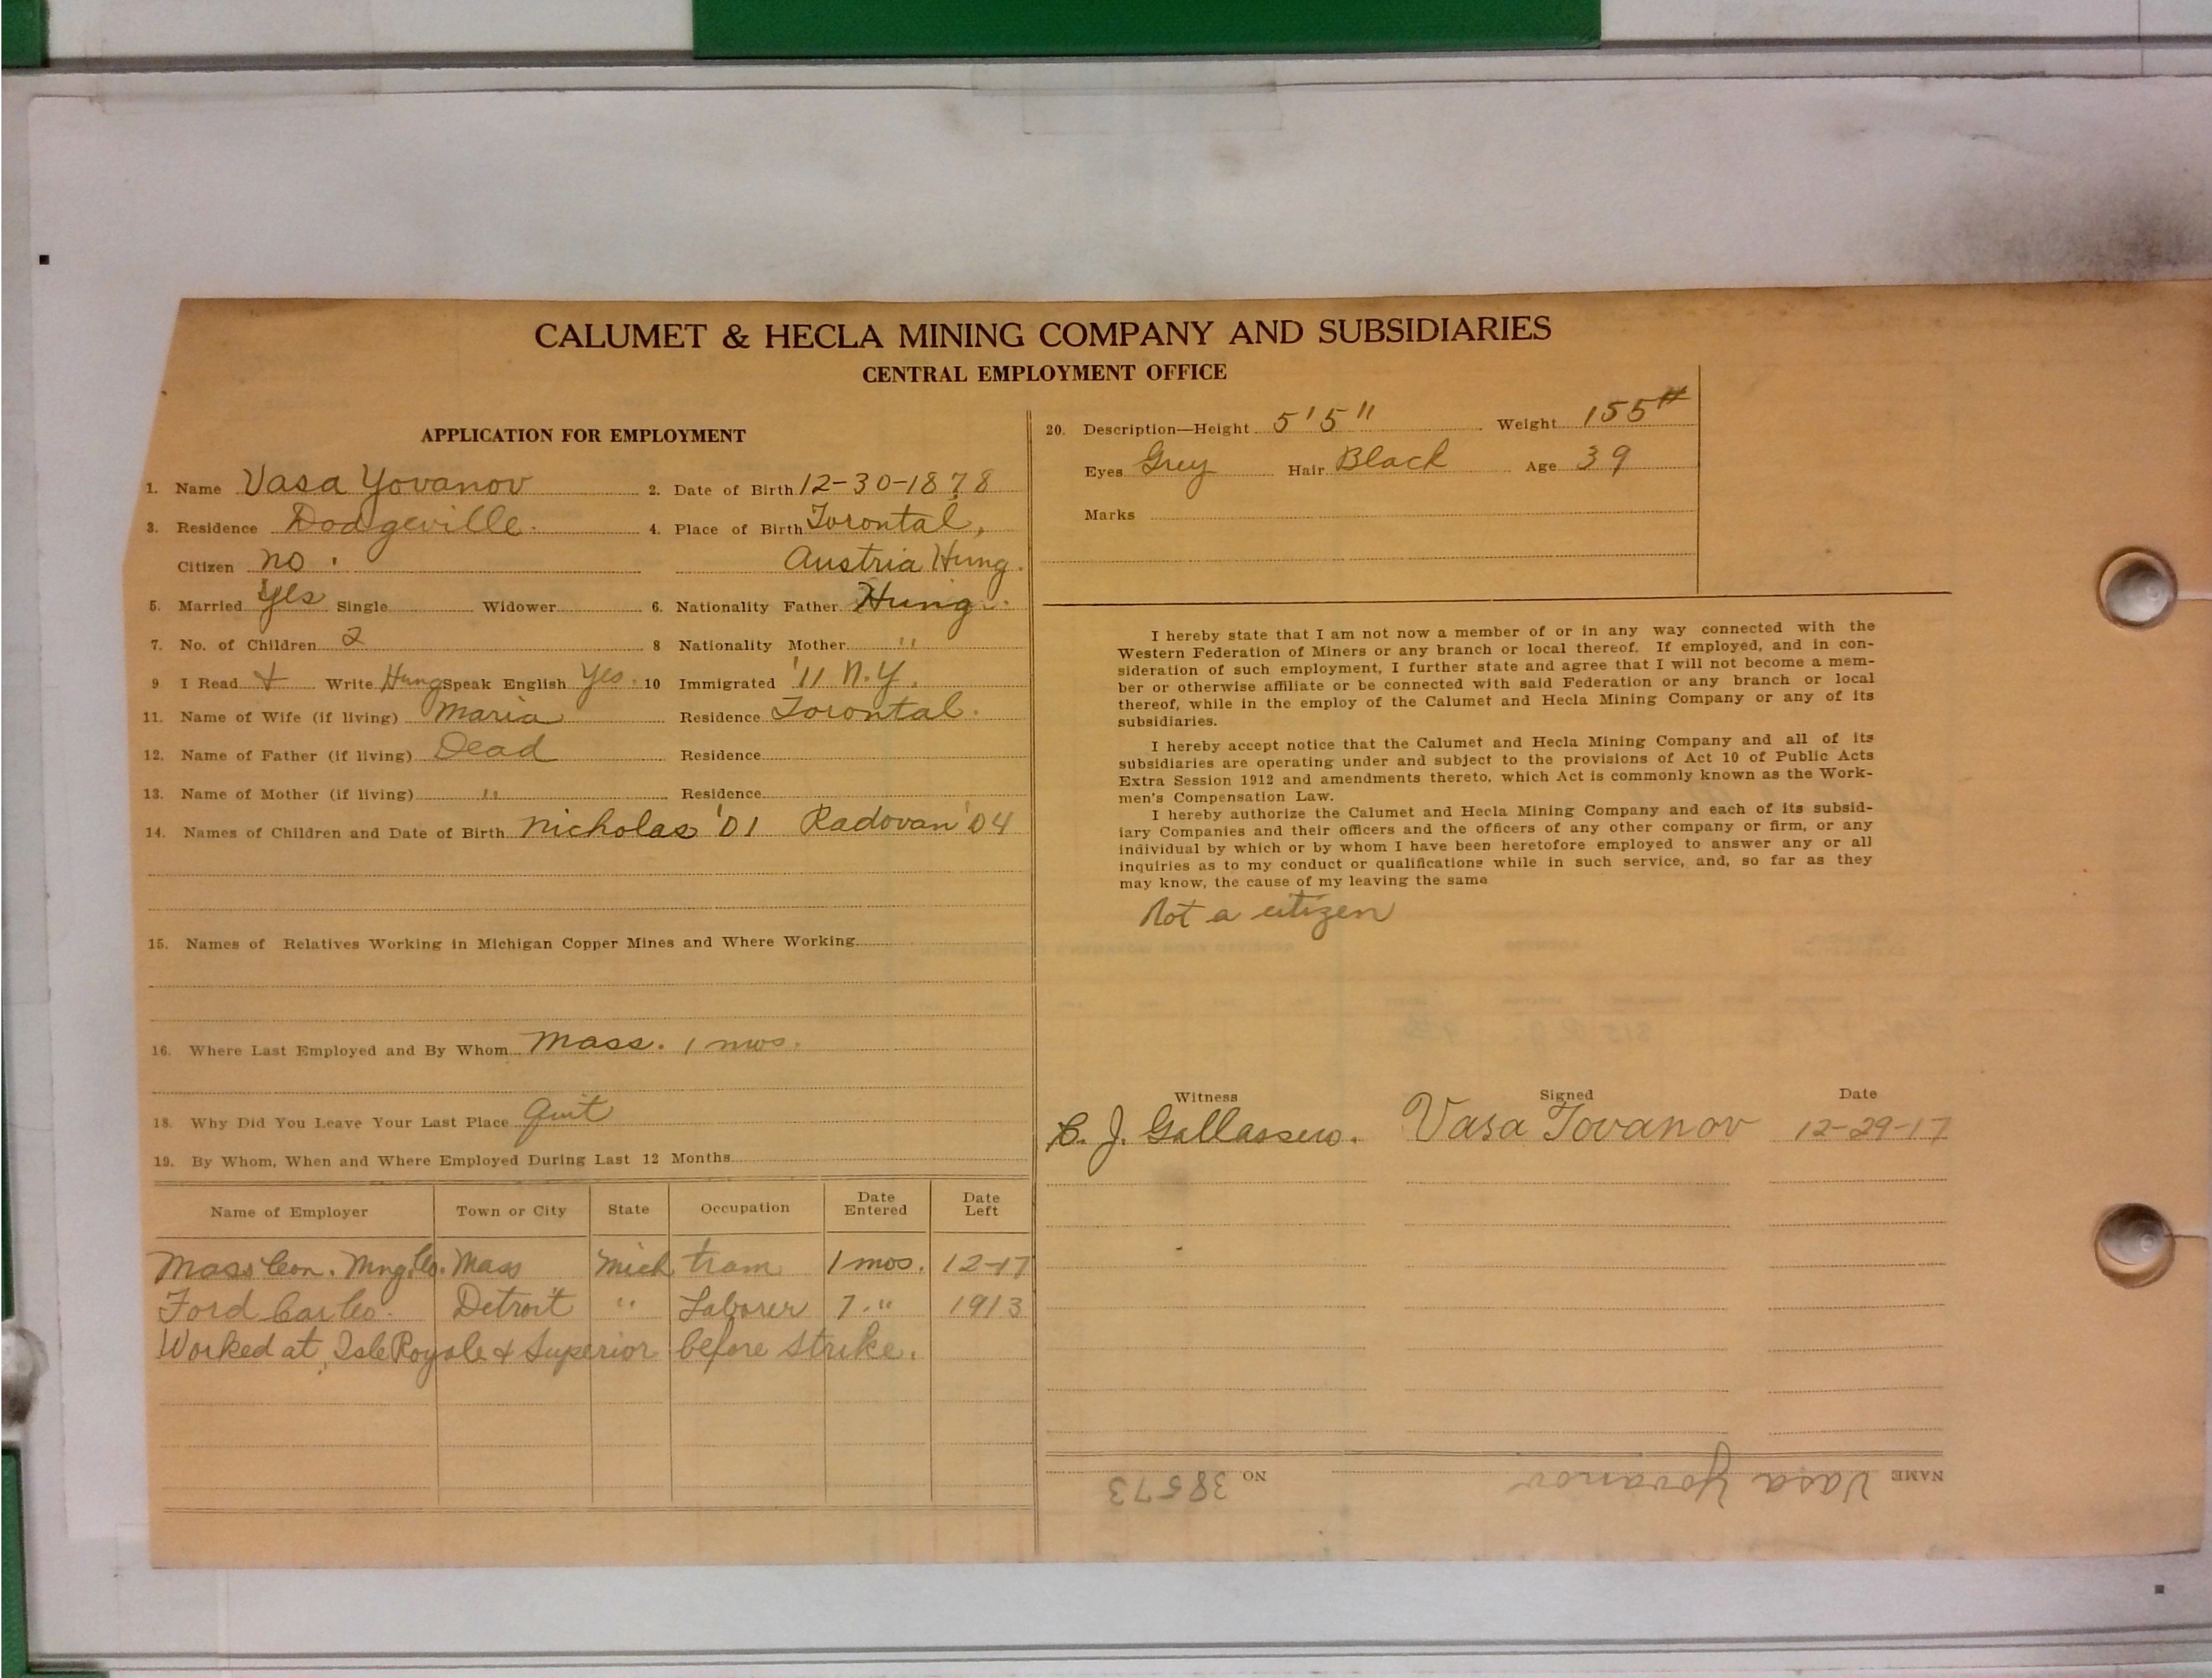 CALUMET & HECLA MINING COMPANY AND SUBSIDIARIES
CENTRAL EMPLOYMENT OFFICE
APPLICATION FOR EMPLOYMENT
1. Name Vasa Yovanov 2. Date of Birth 12-30-1878
3. Residence Dodgeville. 4. Place of Birth Torontal,
Citizen no. Austria Hung.
5. Married Yes Single Widower 6. Nationality Father Hung.
7. No. of Children 2 8 Nationality Mother "
9 I Read + Write Hung Speak English Yes. 10 Immigrated '11 N.Y.
11. Name of Wife (if living) Maria Residence Torontal.
12. Name of Father (if living) Dead Residence
13. Name of Mother (if living) " Residence
14. Names of Children and Date of Birth Nicholas '01 Radovan '04
15. Names of Relatives Working in Michigan Copper Mines and Where Working
16. Where Last Employed and By Whom Mass. 1 mos.
18. Why Did You Leave Your Last Place Quit
19. By Whom, When and Where Employed During Last 12 Months
Name of Employer Town or City State Occupation Date Entered Date Left
Mass Con. Mng. Co. Mass Mich tram 1 mos. 12-17
Ford Car Co. Detroit " Laborer 7 " 1913
Worked at Isle Royale & Superior before strike.
20. Description—Height 5'5" Weight 155#
Eyes Grey Hair Black Age 39
Marks
I hereby state that I am not now a member of or in any way connected with the
Western Federation of Miners or any branch or local thereof. If employed, and in con-
sideration of such employment, I further state and agree that I will not become a mem-
ber or otherwise affiliate or be connected with said Federation or any branch or local
thereof, while in the employ of the Calumet and Hecla Mining Company or any of its
subsidiaries.
I hereby accept notice that the Calumet and Hecla Mining Company and all of its
subsidiaries are operating under and subject to the provisions of Act 10 of Public Acts
Extra Session 1912 and amendments thereto, which Act is commonly known as the Work-
men's Compensation Law.
I hereby authorize the Calumet and Hecla Mining Company and each of its subsid-
iary Companies and their officers and the officers of any other company or firm, or any
individual by which or by whom I have been heretofore employed to answer any or all
inquiries as to my conduct or qualifications while in such service, and, so far as they
may know, the cause of my leaving the same
Not a citizen
Witness Signed Date
C. J. Gallassero. Vasa Jovanov 12-29-17
NAME Vasa Yovanov NO 38573